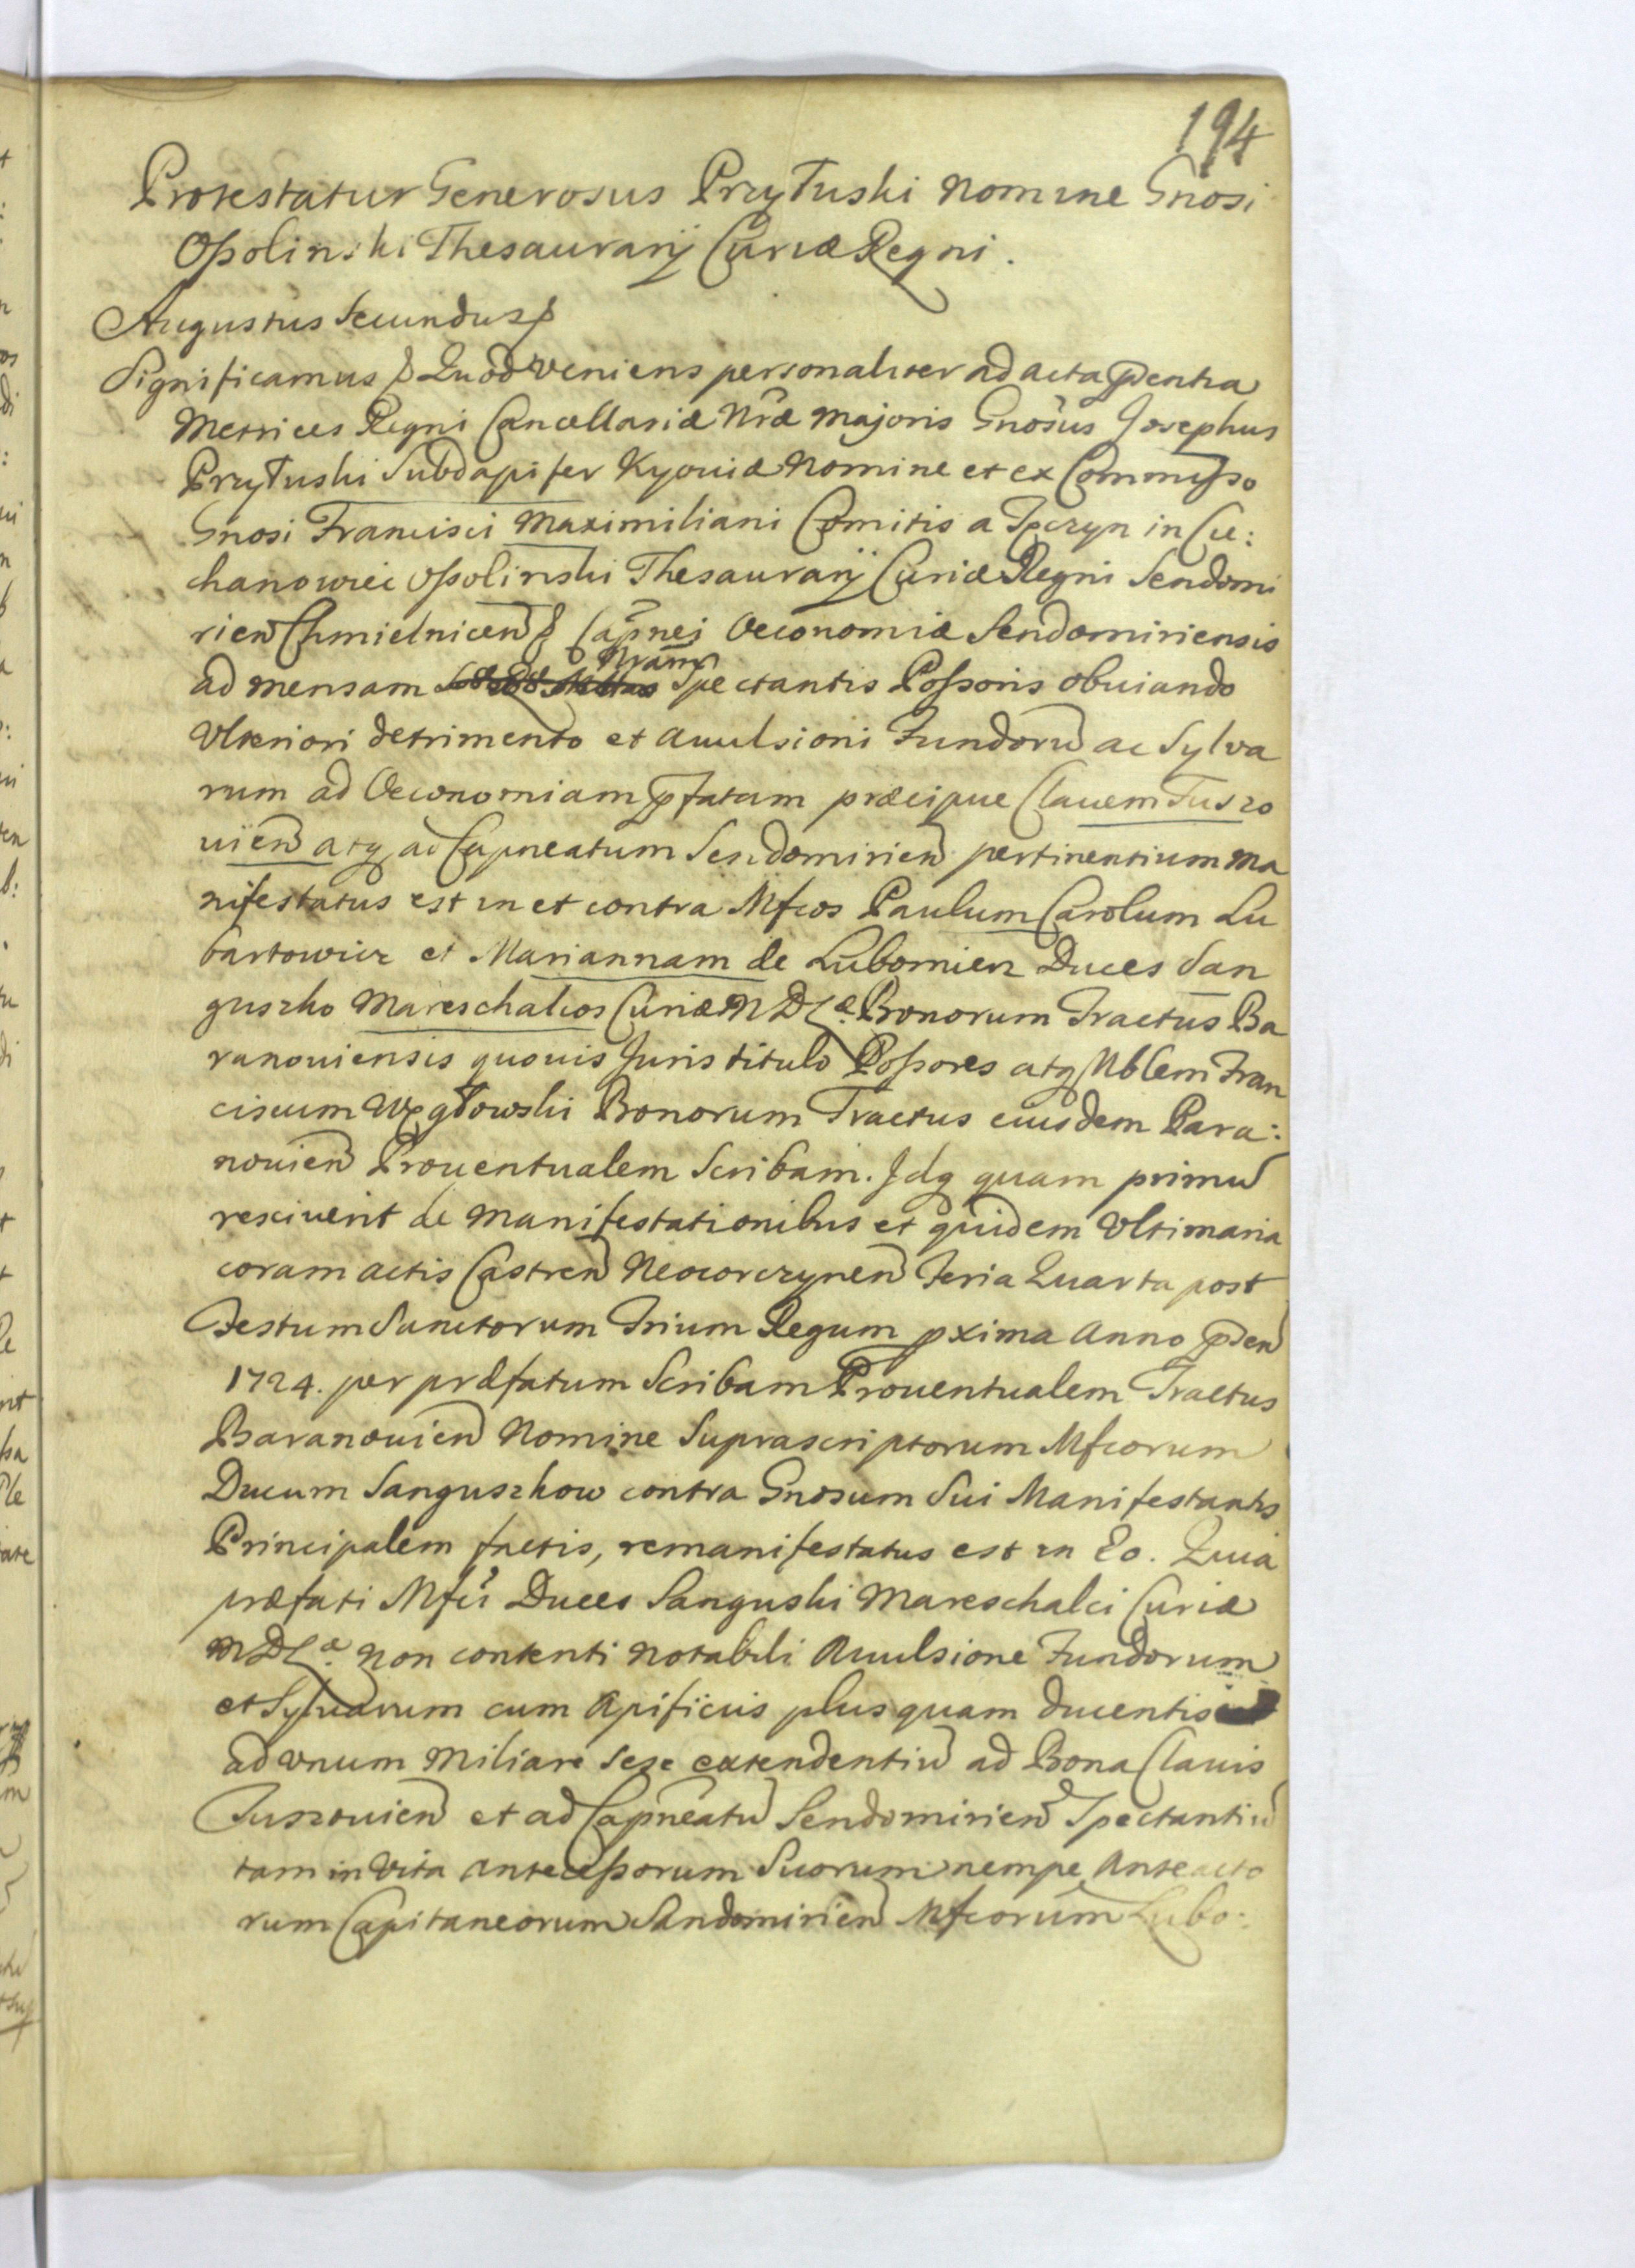 194
Protestatur Generosus Przyłuski Nomine Gnosi
Ossolinski Thesaurarij Curiæ Regni.
Augustus Secundus p
Significamus p Quod veniens personaliter ad acta pñtia
Metrices Regni Cancellariæ Nræ Majoris Gnosus Josephus
Przyłuski Subdapifer Kyoviæ Nomine et ex Commisso
Gnosi Francisci Maximiliani Comitis a Tęczyn in Cie:
chanowiec Ossolinski Thesaurarij Curiæ Regni Sendomi
rien Chmielnicen p Capnei Oeconomiæ Sendomiriensis
ad mensam Nram Spectantis Possoris obuiando
Ulteriori detrimento et Auulsioni Fundorū ac Sylva
rum ad Oeconomiam pfatam præcipue Clauem Tuszo
uien atq ad Capneatum Sendomirien pertinentium Ma
nifestatus est in et contra Mfcos Paulum Carolum Lu
bartowicz et Mariannam de Lubomierz Duces San
guszko Mareschalcos Curiæ M D Læ. Bonorum Tractus Ba
ranouiensis quouis Juris titulo Possores atq Nblem Fran
ciscum Węgłowski Bonorum Tractus eiusdem Bara:
nouien Prouentualem Scribam. Idq quam primū
resciuerit de Manifestationibus et quidem Ultimaria
coram actis Castren Neocorczynen Feria Quarta post
Festum Sanctorum Trium Regum pxima Anno pñen
1724. per præfatum Scribam Prouentualem Tractus
Baranouien Nomine Suprascriptorum Mfcorum
Ducum Sanguszkow contra Gnosum Sui Manifestantis
Principalem factis, remanifestatus est in Eo. Quia
præfati Mfci Duces Sanguski Mareschalci Curiæ
M D Læ. Non contenti Notabili Auulsione Fundorum
et Syluarum cum Apificiis plusquam ducentis
ad vnum Miliare sese extendentiū ad Bona Clauis
Tuszouien et ad Capneatū Sendomirien Spectantiū
tam in Vita Antecessorum Suorum nempe Anteacto
rum Capitaneorum Sandomirien Mfcorum Lubo: